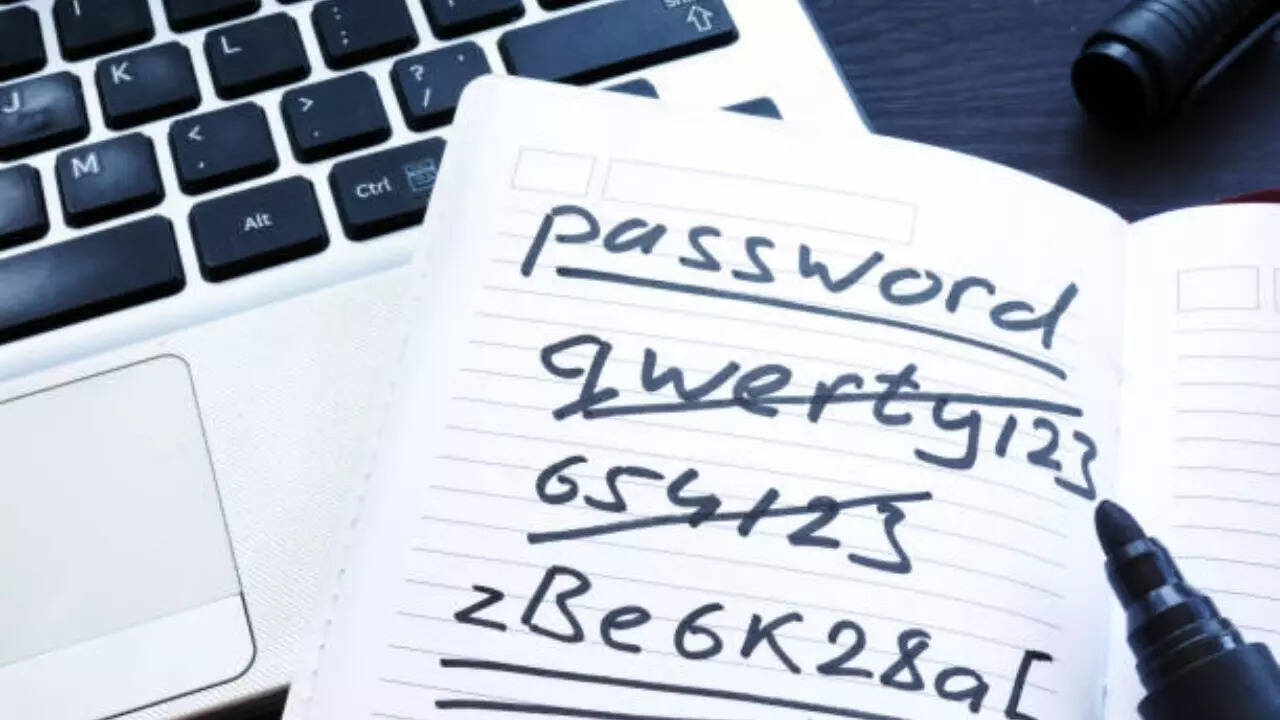 L
:
;
K
?
/
J
>
.
<
,
M
Ctrl
Alt
password
qwerty123
654123
zBe6K28a[